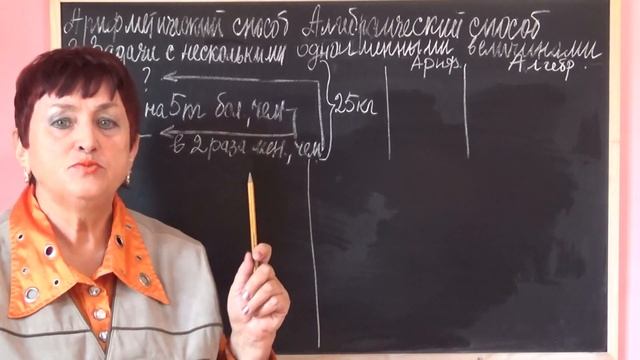 Арифметический способ Алгебраический способ
Задачи с несколькими одноименными величинами
Ариф. Алгебр.
?
на 5 кг бол, чем
25 кг
в 2 раза мен., чем